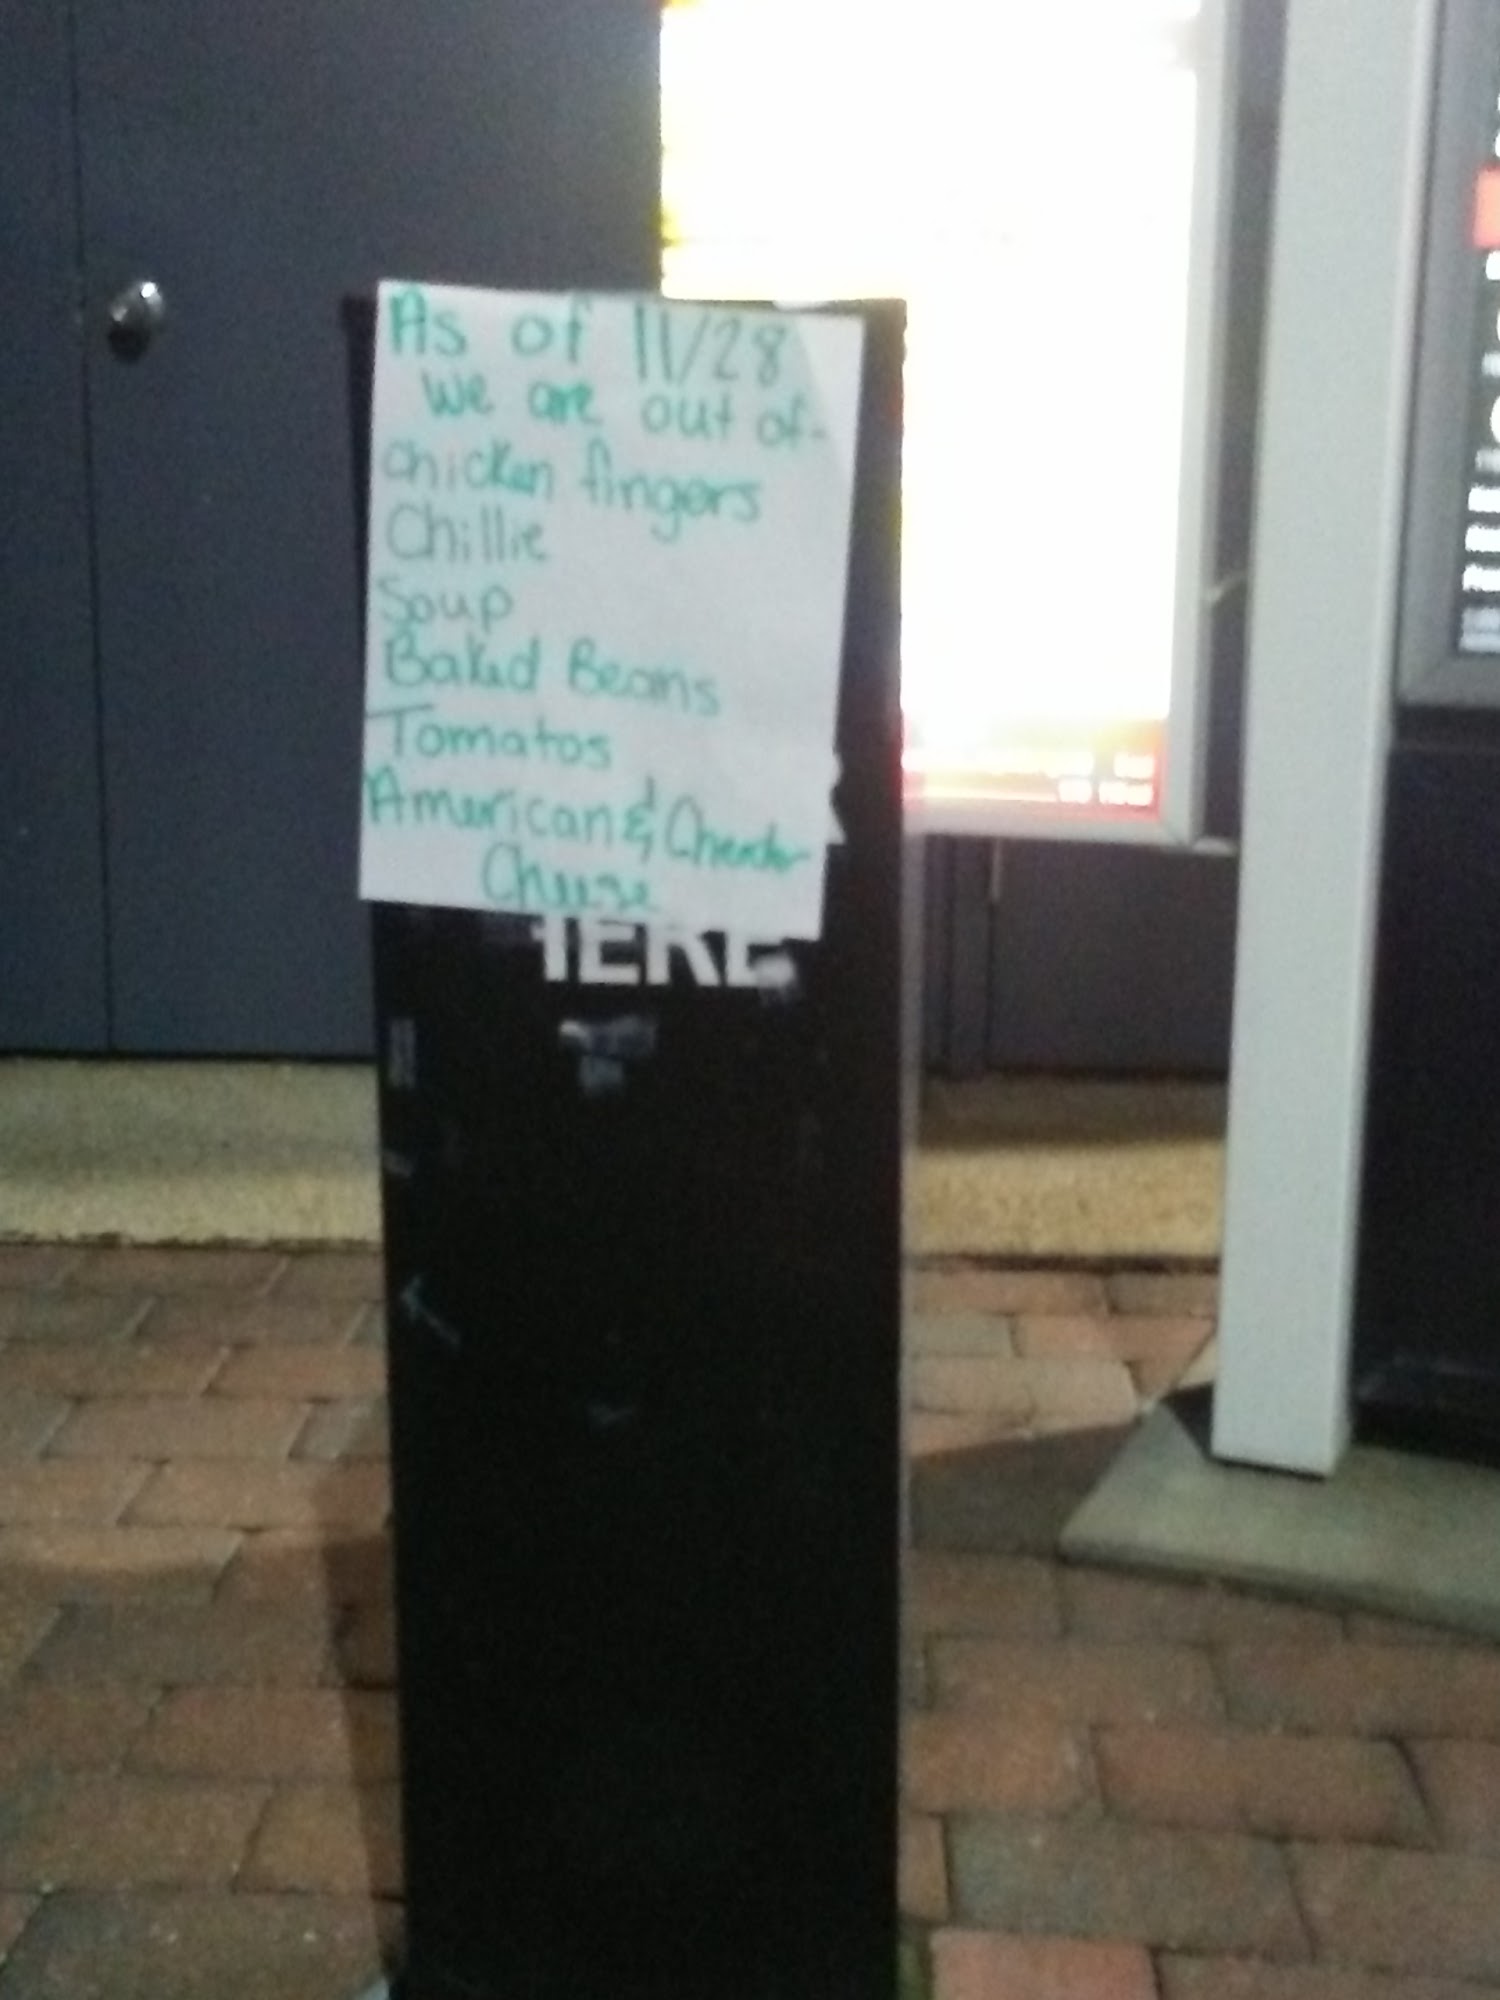 As of 11/28
we are out of-
chicken fingers
Chillie
Soup
Baked Beans
Tomatos
American & Chedder
Cheese
HERE